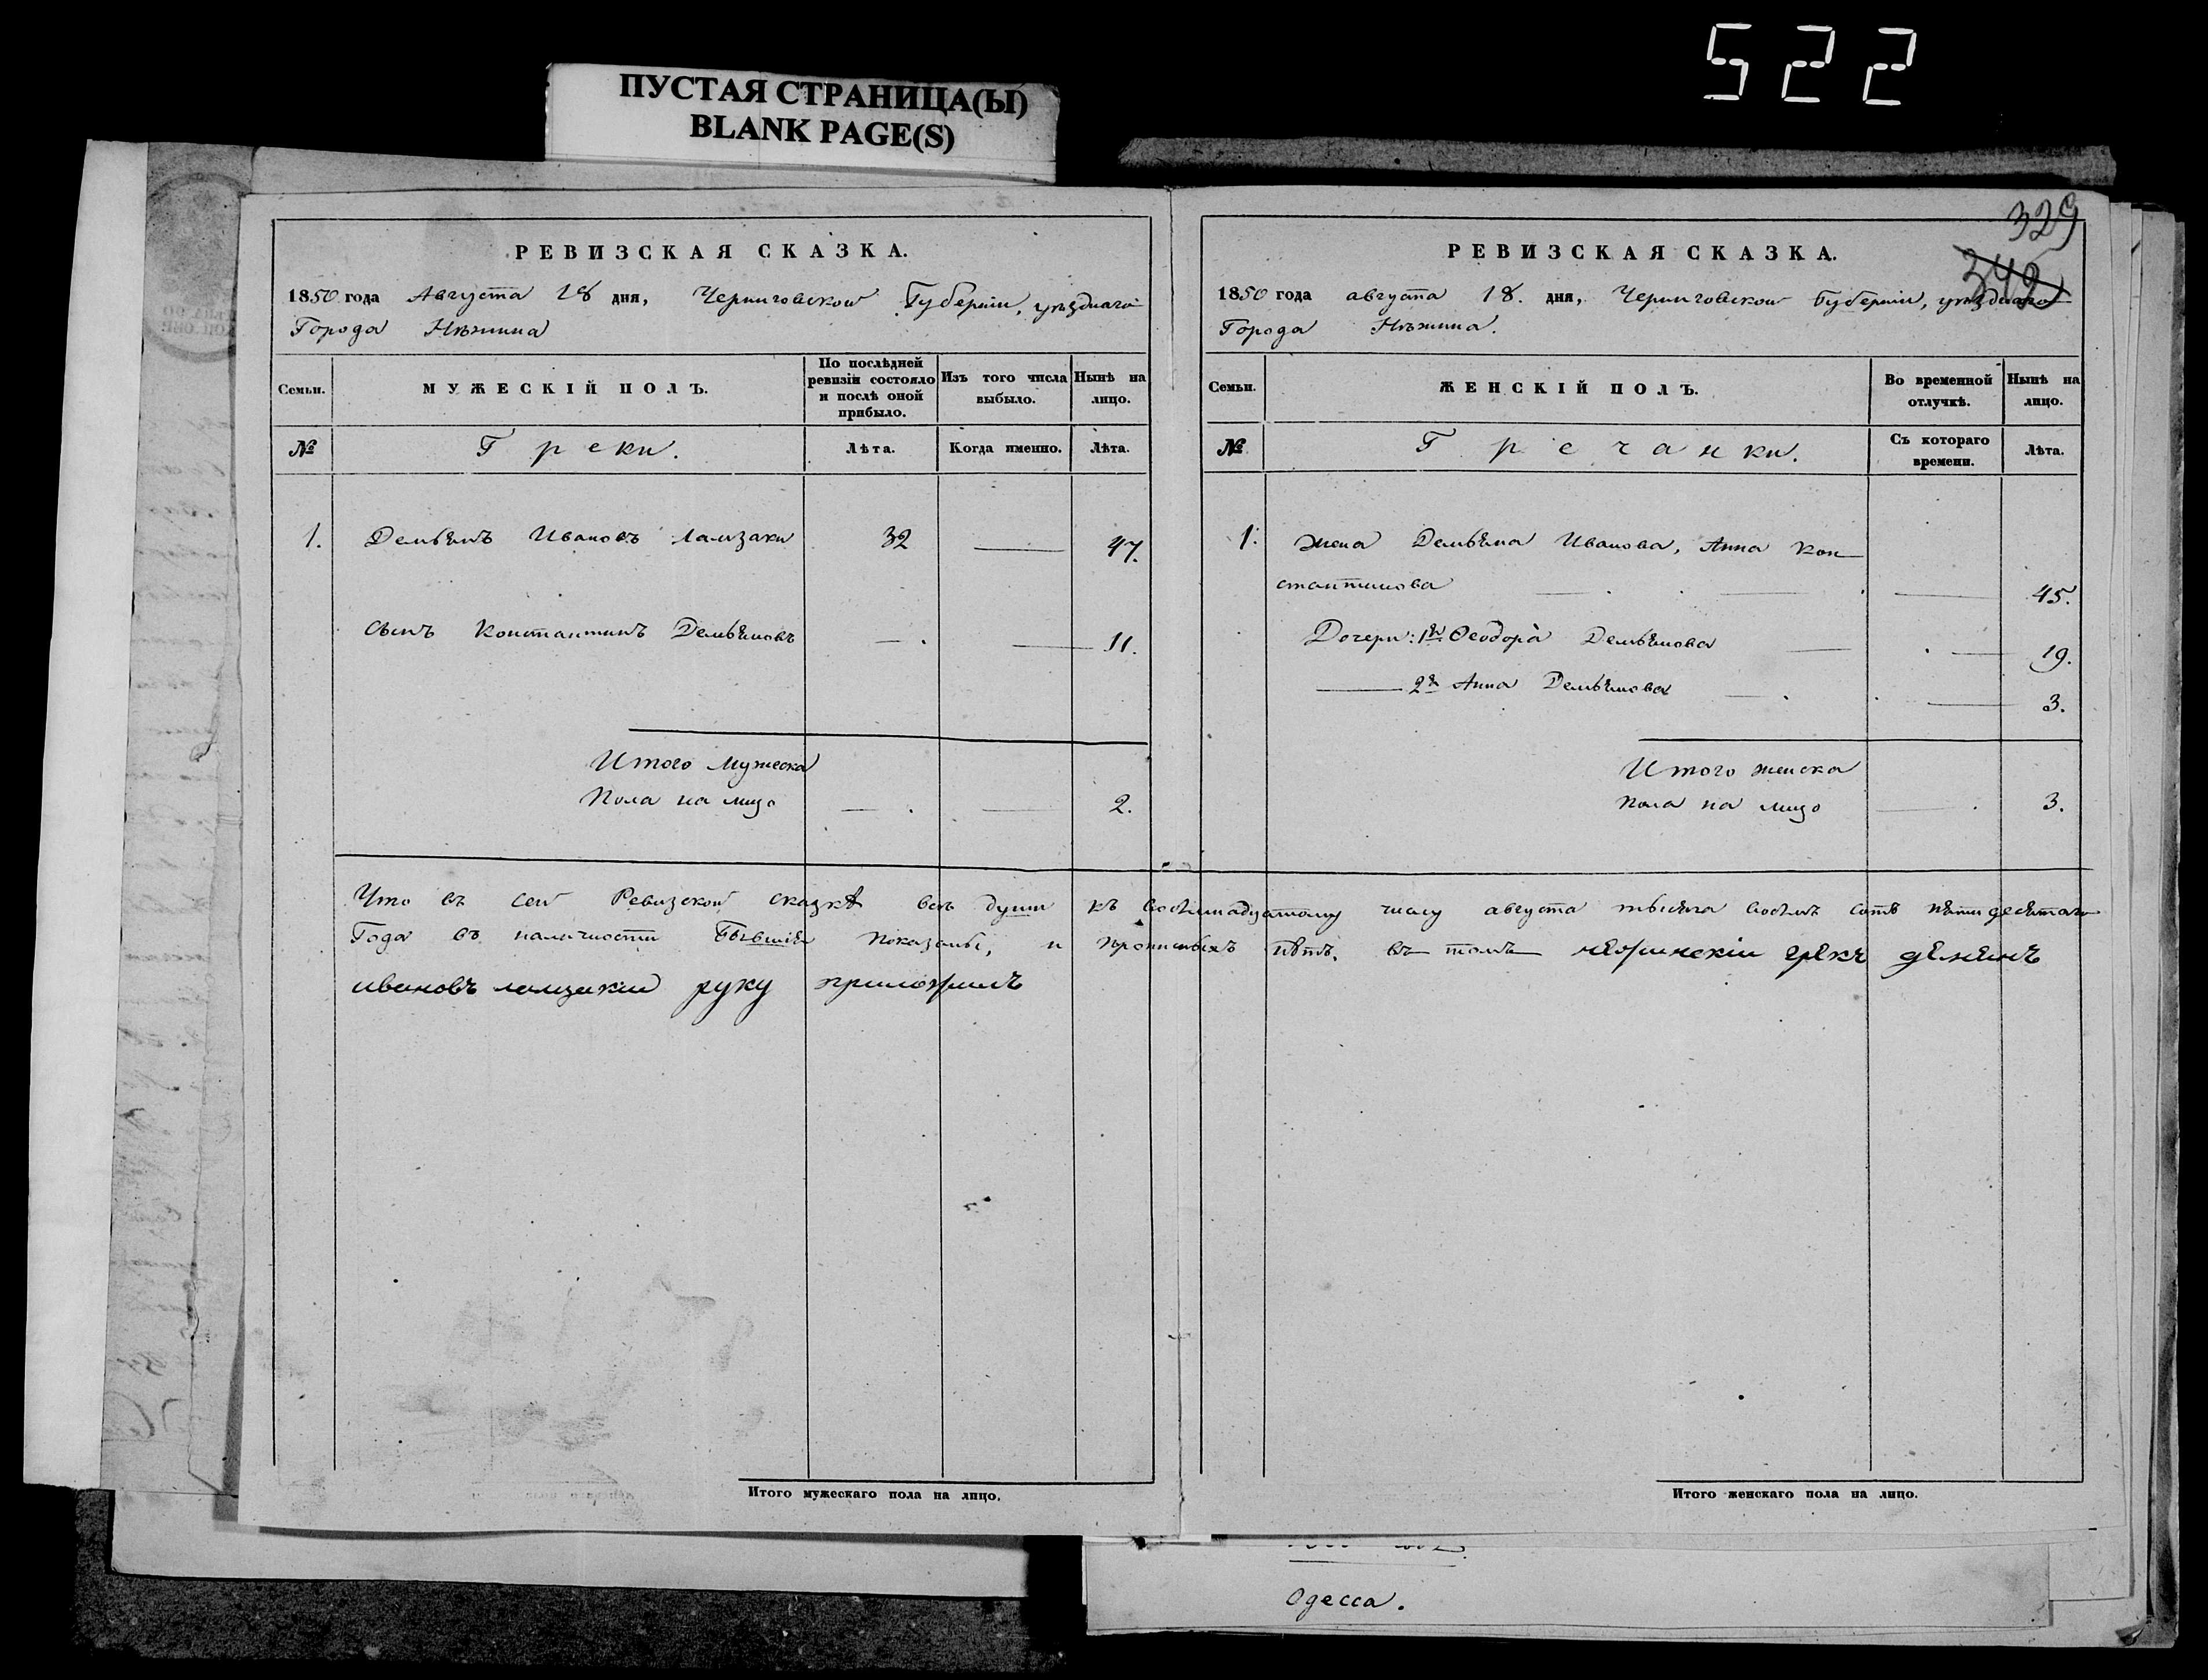 522
ПУСТАЯ СТРАНИЦА(Ы)
BLANK PAGE(S)
РЕВИЗСКАЯ СКАЗКА.
1850 года Августа 18 дня, Черниговской Губерніи, уѣзднаго
Города Нѣжина
Семьи.
МУЖЕСКІЙ ПОЛЪ.
По послѣдней ревизіи состояло и послѣ оной прибыло.
Изъ того числа выбыло.
Нынѣ на лицо.
№
Греки.
Лѣта.
Когда именно.
Лѣта.
1. Демьянъ Ивановъ Ламзаки 32 — 47.
сынъ Константинъ Демьяновъ — . — 11.
Итого мужеска
Пола на лицо — . — 2.
329
342
РЕВИЗСКАЯ СКАЗКА.
1850 года августа 18. дня, Черниговской Губерніи, уѣзднаго
Города Нѣжина.
Семьи.
ЖЕНСКІЙ ПОЛЪ.
Во временной отлучкѣ.
Нынѣ на лицо.
№
Гречанки.
Съ котораго времени.
Лѣта.
1. Жена Демьяна Иванова, Анна Кон
стантинова — . — . — 45.
Дочери: 1я Ѳеодора Демьянова — . — 19.
— 2я Анна Демьянова — . — 3.
Итого женска
пола на лицо — . 3.
Что въ сей Ревизской сказкѣ всѣ души къ восѣмнадцатому числу августа тысяча восѣмъ сотъ пятидесятаго
Года въ наличности бывшія показаны, и прописныхъ нѣтъ. въ томъ неѣжинскіи грекъ демянъ
ивановъ ламзакии руку приложилъ
Итого мужескаго пола на лицо.
Итого женскаго пола на лицо.
Одесса.